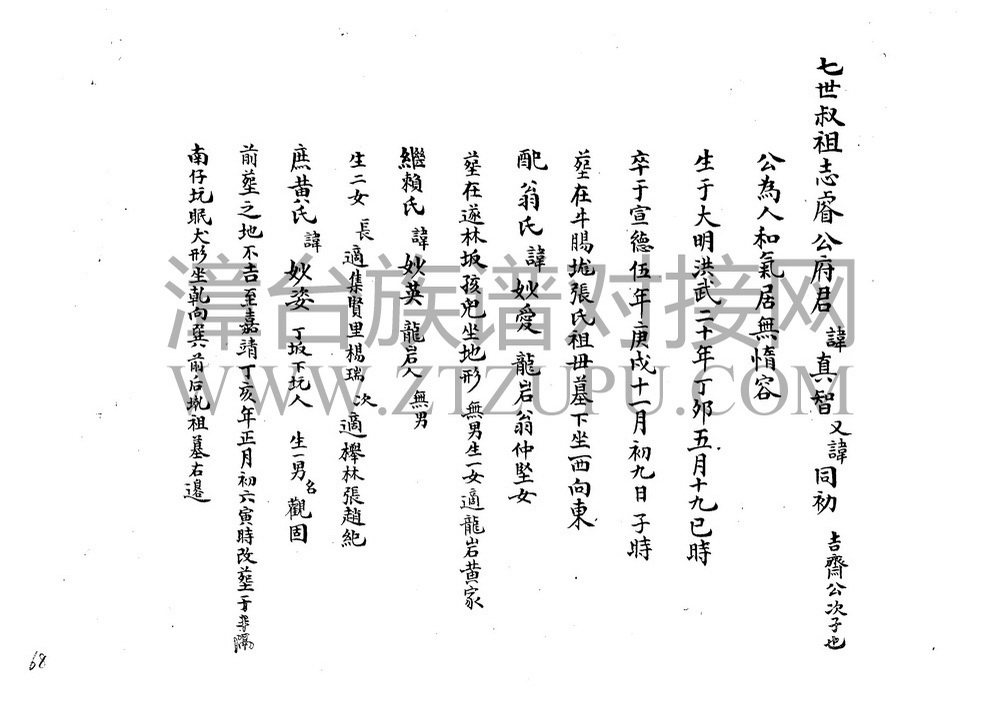 七世叔祖志睿公府君 諱真智 又諱同初 吉齋公次子也
公為人和氣居無惰容
生于大明洪武二十年丁卯五月十九巳時
卒于宣德伍年庚戌十一月初九日子時
塟在牛腸墘張氏祖毋墓下坐西向東
配翁氏 諱妙愛 龍岩翁仲堅女
塟在遂林坂孩兒坐地形 無男生一女適龍岩黄家
繼賴氏 諱妙英 龍岩人 無男
生二女 長適集賢里楊瑞 次適櫸林張趙純
庶黄氏 諱妙姿 丁坂下坑人 生一男名觀固
前塟之地不吉至嘉靖丁亥年正月初六寅時改塟于隔
南仔坑眠犬形坐乾向巽前后祖墓右邉
68
漳台族谱对接网
WWW.ZTZUPU.COM